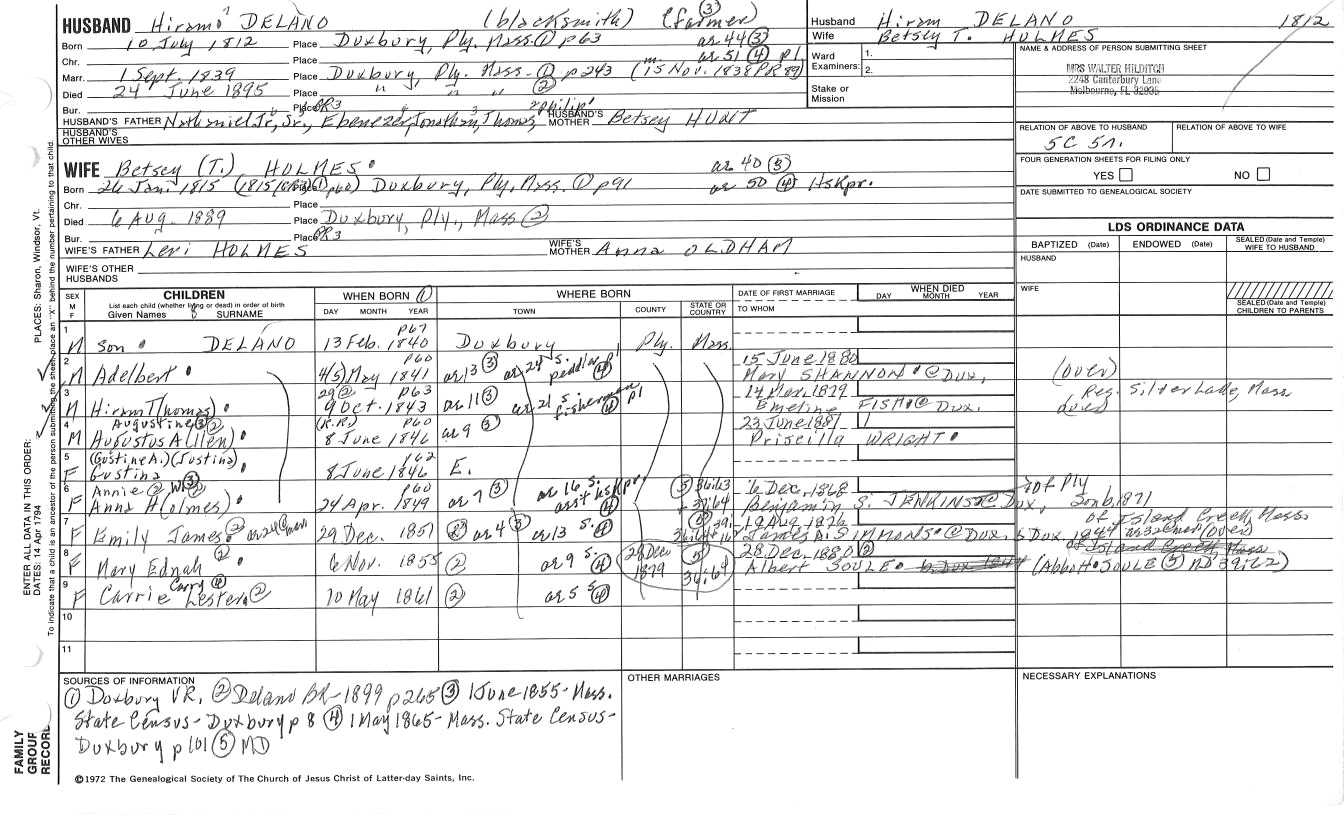 HUSBAND Hiram DELANO (blacksmith) (farmer) ③
Born 10 July 1812 Place Duxbury, Ply. Mass. ① p63 ae 44 ③
Chr. Place ae 51 ④ p1
Marr. 1 Sept. 1839 Place Duxbury, Ply. Mass. ① p243 (m. 15 Nov. 1838 PR 89)
Died 24 June 1895 Place " " " ②
Bur. Place PR3
HUSBAND'S FATHER Nathaniel Jr, Sr, Ebenezer, Jonathan, Thomas, Philip HUSBAND'S MOTHER Betsey HUNT
HUSBAND'S OTHER WIVES
Husband Hiram DELANO 1812
Wife Betsey T. HOLMES
Ward Examiners: 1.
2.
Stake or Mission
NAME & ADDRESS OF PERSON SUBMITTING SHEET
MRS WALTER HILDITCH
2248 Canterbury Lane
Melbourne, FL 32935
RELATION OF ABOVE TO HUSBAND RELATION OF ABOVE TO WIFE
5C 5r.
FOUR GENERATION SHEETS FOR FILING ONLY
YES NO
DATE SUBMITTED TO GENEALOGICAL SOCIETY
WIFE Betsey (T.) HOLMES ae 40 ③
Born 26 Jan. 1815 Place Duxbury, Ply, Mass. ① p91 ae 50 ④ Hskpr.
Chr. Place
Died 6 Aug. 1889 Place Duxbury, Ply., Mass ②
Bur. Place PR3
WIFE'S FATHER Levi HOLMES WIFE'S MOTHER Anna OLDHAM
WIFE'S OTHER HUSBANDS
LDS ORDINANCE DATA
BAPTIZED (Date) ENDOWED (Date) SEALED (Date and Temple) WIFE TO HUSBAND
HUSBAND
WIFE
SEALED (Date and Temple) CHILDREN TO PARENTS
SEX M F CHILDREN
List each child (whether living or dead) in order of birth
Given Names SURNAME
WHEN BORN ① DAY MONTH YEAR
WHERE BORN TOWN COUNTY STATE OR COUNTRY
DATE OF FIRST MARRIAGE TO WHOM
WHEN DIED DAY MONTH YEAR
1 M Son DELANO 13 Feb. 1840 p67 Duxbury Ply. Mass.
2 M Adelbert 4(5) May 1841 p60 ae 13 ③ ae 24 s. pedlar p1 ④ 15 June 1880 Mary SHANNON @ Dux. (over)
3 M Hiram T(homas) 29 ② 9 Oct. 1843 p63 ae 11 ③ ae 21 s. fisherman ④ p1 14 Mar. 1879 Emeline FISH @ Dux. Res. Silver Lake, Mass
4 M Augustine ③ ② Augustus A(llen) (P.R.) 8 June 1846 p60 ae 9 ③ 23 June 1881 Priscilla WRIGHT
5 F (Gustine A.) (Justina) Gustina 8 June 1846 p62 E.
6 F Annie ② W ③ Anna H(olmes) 24 Apr. 1849 p60 ae 7 ③ ae 16 s. asst hskpr ④ ⑤ 36:63 + 39:64 6 Dec. 1868 Benjamin S. JENKINS @ Dux, of Ply
7 F Emily James ② 29 Dec. 1851 ② ae 4 ③ ae 13 s. ④ ⑤ 19 Aug. 1876 James A. SIMMONS @ Dux. b Dux. 1844 of Island Creek, Mass (over)
8 F Mary Ednah ② 6 Nov. 1855 ② ae 9 s. ④ 28 Dec 1879 ⑤ 36:64 28 Dec. 1880 ② Albert SOULE (Abbott SOULE ⑤ MD 39:62)
9 F Carry ④ Carrie Lester ② 10 May 1861 ② ae 5 s ④
10
11
SOURCES OF INFORMATION
① Duxbury VR, ② Delano BR-1899 p265 ③ 1 June 1855- Mass.
State Census- Duxbury p 8 ④ 1 May 1865- Mass. State Census-
Duxbury p 101 ⑤ MD
OTHER MARRIAGES
NECESSARY EXPLANATIONS
©1972 The Genealogical Society of The Church of Jesus Christ of Latter-day Saints, Inc.
FAMILY GROUP RECORD
ENTER ALL DATA IN THIS ORDER:
DATES: 14 Apr 1794
PLACES: Sharon, Windsor, Vt.
To indicate that a child is an ancestor of the person submitting the sheet, place an "X" behind the number pertaining to that child.